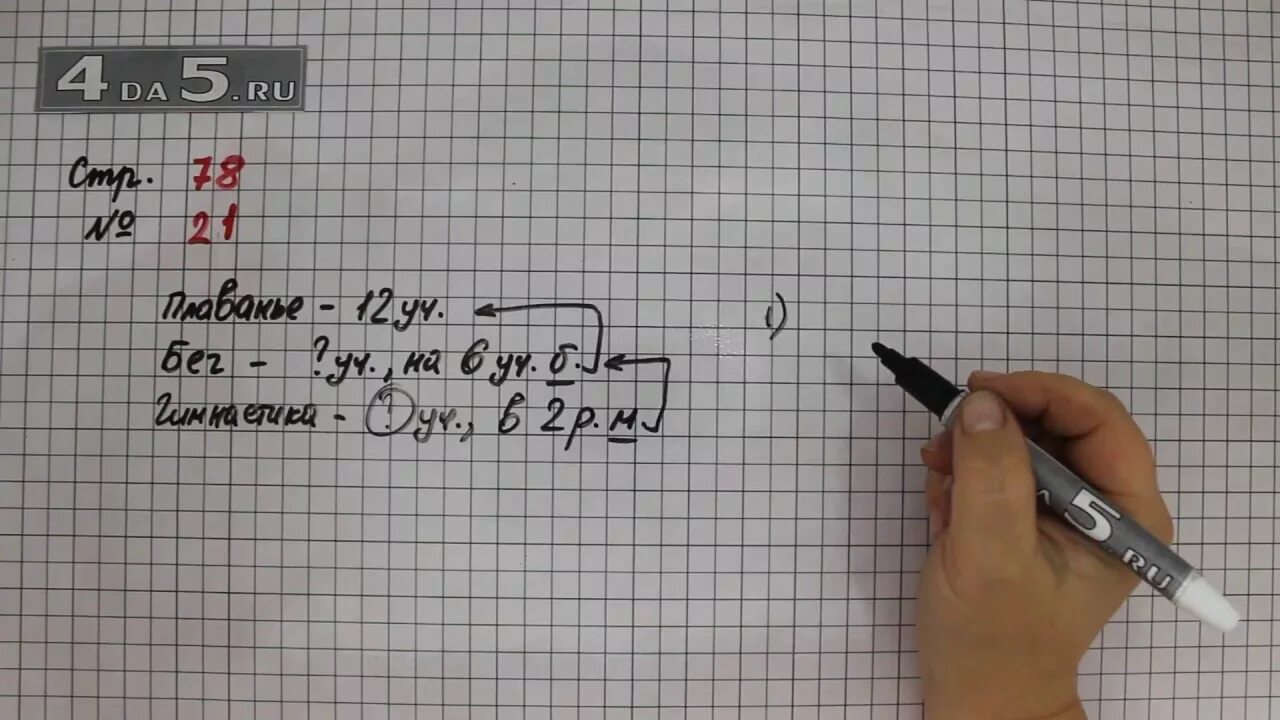 4DA5.RU
Стр. 78
№ 21
Плаванье - 12 уч.
Бег - ? уч., на 6 уч. б.
Гимнастика - ? уч., в 2 р. м
1)
А5.RU